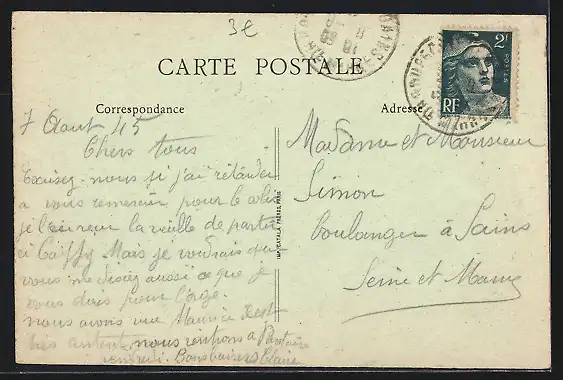 3€
CARTE POSTALE
Correspondance
Adresse
2F
POSTES
RF
7 Aout 45
Chers tous
Excusez-nous si j'ai retarder
a vous remercier pour le colis
je l'ai reçu la veille de partir
a Mais je voudrais que
vous me disiez aussi ce que je
vous dois pour l'orge.
nous avons vu Maurice
très nous rentrons a
vendredi. Bons baisers
IMP. CATALA FRÈRES, PARIS
Madame et Monsieur
Simon
boulanger à Sains
Seine et Marne